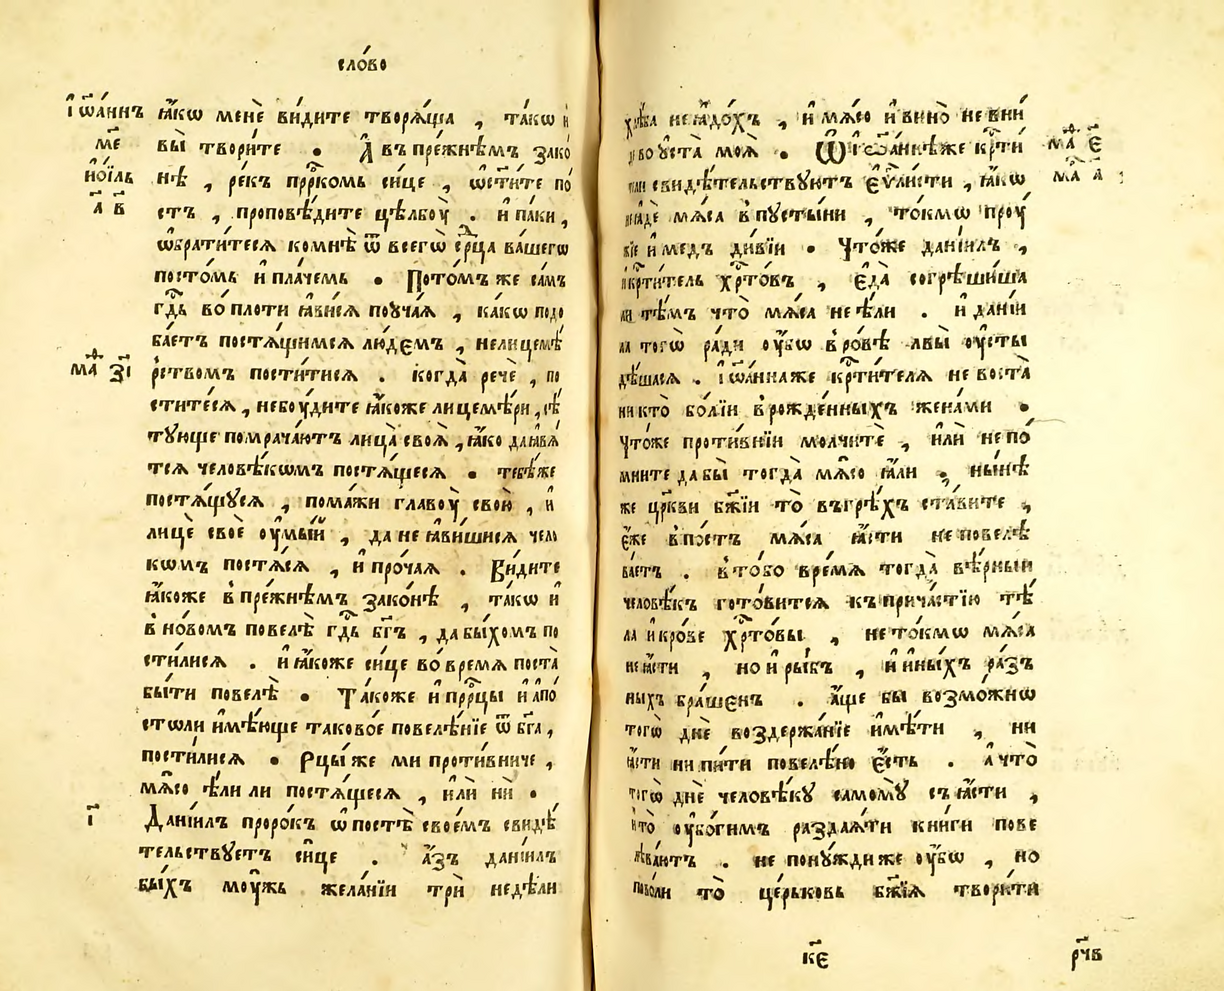 сло́во
І҆ѡа́ннъ
ме
и҆ о҆и́ль
а҃ в҃
ꙗ҆́кѡ менѐ ви́дите творѧ́ща , та́кѡ и҆
вы̀ твори́те . А҆ въ пре́жнѣмъ зако
нѣ , ре́къ прⷪ҇ркомь си́це , ѡ҆сти́те по́
стъ , проповѣ́дите цѣлбоу̀ . и҆ па́ки ,
ѡ҆брати́тесѧ комнѣ̀ ѿ всегѡ̀ срⷣца ва́шегѡ
посто́мь и҆ пла́чемь . Пото́мъ же са́мъ
гдⷭ҇ь во́ плоти ꙗ҆ви́сѧ поуча́ѧ , ка́кѡ подо
ба́етъ постѧ́щимсѧ лю́демъ , нелицемѣ́
маⷴ҇ зі҃
рствомъ пости́тисѧ . когда̀ речѐ , по
сти́тесѧ , не бо́удите ꙗ҆́коже лицемѣ́ри , сѣ́
тующе помрача́ютъ ли́ца своѧ̀ , ꙗ҆́ко да ꙗ҆вѧ́
тсѧ человѣ́кѡмъ постѧ́щесѧ . тебѣ́же
постѧ́щусѧ , пома́жи главоу̀ свою̀ , и҆
лицѐ своѐ оу҆мы́й , да не ꙗ҆ви́шисѧ чело
кѡмъ постѧ́сѧ , и҆ про́чаѧ . Ви́дите
ꙗ҆́коже в пре́жнѣмъ зако́нѣ , та́кѡ и҆
в но́вомъ повелѣ̀ гдⷭ҇ь бг҃ъ , да бы́хомъ по
сти́лисѧ . и҆ ꙗ҆́коже си́це во́ времѧ поста̀
бы́ти повелѣ̀ . Та́коже и҆ прⷪ҇рцы и҆ а҆по́
столи и҆мѣ́юще таково́е повелѣ́нїе ѿ бг҃а ,
пости́лисѧ . Рцы́ же ми проти́вниче ,
мѧ́со ѣ́ли ли постѧ́щесѧ , и҆лѝ нѝ .
і҃
Данїи́лъ проро́къ ѡ҆ постѣ̀ свое́мъ свидѣ́
тельствуетъ си́це . а҆́зъ данїи́лъ
бы́хъ моу́жь жела́нїи трѝ недѣ́ли
хлѣ́ба не ꙗ҆до́хъ , и҆ мѧ́со и҆ вино̀ не вни́
до во оу҆ста̀ моѧ̀ . Ѿ і҆ѡа́ннѣже крⷭ҇ти
мⷴ҇а є҃
тели свидѣ́тельствуютъ є҆ѵⷢ҇листи , ꙗ҆́кѡ
мⷬ҇а а҃
не ꙗ҆дѐ мѧ́са в пусты́ни , то́кмѡ проу́
жїе и҆ ме́дъ ди́вїи . Что́же данїи́лъ ,
и҆ крⷭ҇ти́тель хрⷭ҇то́въ , є҆да̀ согрѣши́ша
ли тѣ́мъ что̀ мѧ́са не ѣ́ли . и҆ данїи́
ла тогѡ̀ ра́ди оу҆́бѡ в ро́вѣ львы̀ оу҆сты
дѣ́шасѧ . І҆ѡа́ннаже крⷭ҇ти́телѧ не воста̀
никто̀ бо́лїи в рожде́нныхъ жена́ми .
Что́же проти́внїи молчитѐ , и҆лѝ не по́
мните да бы̀ тогда̀ мѧ́со ꙗ҆́ли , ны́нѣ
же цр҃кви бж҃їи то̀ въ грѣ́хъ ста́вите ,
є҆́же в по́стъ мѧ́са ꙗ҆́сти не повелѣ
ва́етъ . в то́бо вре́мѧ тогда̀ вѣ́рный
человѣ́къ гото́витсѧ къ прича́стїю тѣ́
ла и҆ кро́ве хрⷭ҇то́вы , не то́кмѡ мѧ́са
не ꙗ҆́сти , но и҆ ры́бъ , и҆ и҆ны́хъ ра́зъ
ныхъ бра́шенъ . а҆́ще бы возмо́жнѡ
тогѡ̀ днѐ воздержа́нїе и҆мѣ́ти , ни
ꙗ҆́сти ни пи́ти повелѣ́но є҆́сть . а҆ что̀
тогѡ̀ днѐ человѣ́ку самому̀ съ ꙗ҆́сти ,
и҆ то̀ оу҆бо́гимъ раздаѧ́ти кни́ги пове
лѣва́ютъ . не пону́жди же оу҆́бѡ , но
пово́ли то̀ це́рьковь бж҃їѧ твори́ти
к҃є
рч҃в